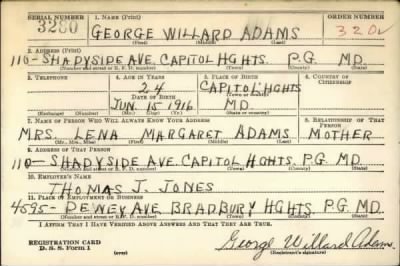 SERIAL NUMBER 1. NAME (Print) ORDER NUMBER
3280 GEORGE WILLARD ADAMS
(First) (Middle) (Last)
2. ADDRESS (Print)
110-SHADYSIDE AVE. CAPITOL HGHTS. P.G. MD.
(Number and street or R. F. D. number) (Town) (County) (State)
3. TELEPHONE 4. AGE IN YEARS 5. PLACE OF BIRTH 6. COUNTRY OF CITIZENSHIP
24 CAPITOL HGHTS
DATE OF BIRTH
JUN. 15 1916 MD.
(Exchange) (No.) (Mo.) (Day) (Yr.) (State or country)
7. NAME OF PERSON WHO WILL ALWAYS KNOW YOUR ADDRESS 8. RELATIONSHIP OF THAT PERSON
MRS. LENA MARGARET ADAMS MOTHER
(Mr., Mrs., Miss) (First) (Middle) (Last)
9. ADDRESS OF THAT PERSON
110-SHADYSIDE AVE. CAPITOL HGHTS. P.G. MD.
(Number and street or R. F. D. number) (Town) (County) (State)
10. EMPLOYER'S NAME
THOMAS J. JONES
11. PLACE OF EMPLOYMENT OR BUSINESS
4595-DEWEY AVE BRADBURY HGHTS P.G. MD.
(Number and street or R. F. D. number) (Town) (County) (State)
I AFFIRM THAT I HAVE VERIFIED ABOVE ANSWERS AND THAT THEY ARE TRUE.
REGISTRATION CARD
D. S. S. Form 1
George Willard Adams
(Registrant's signature)